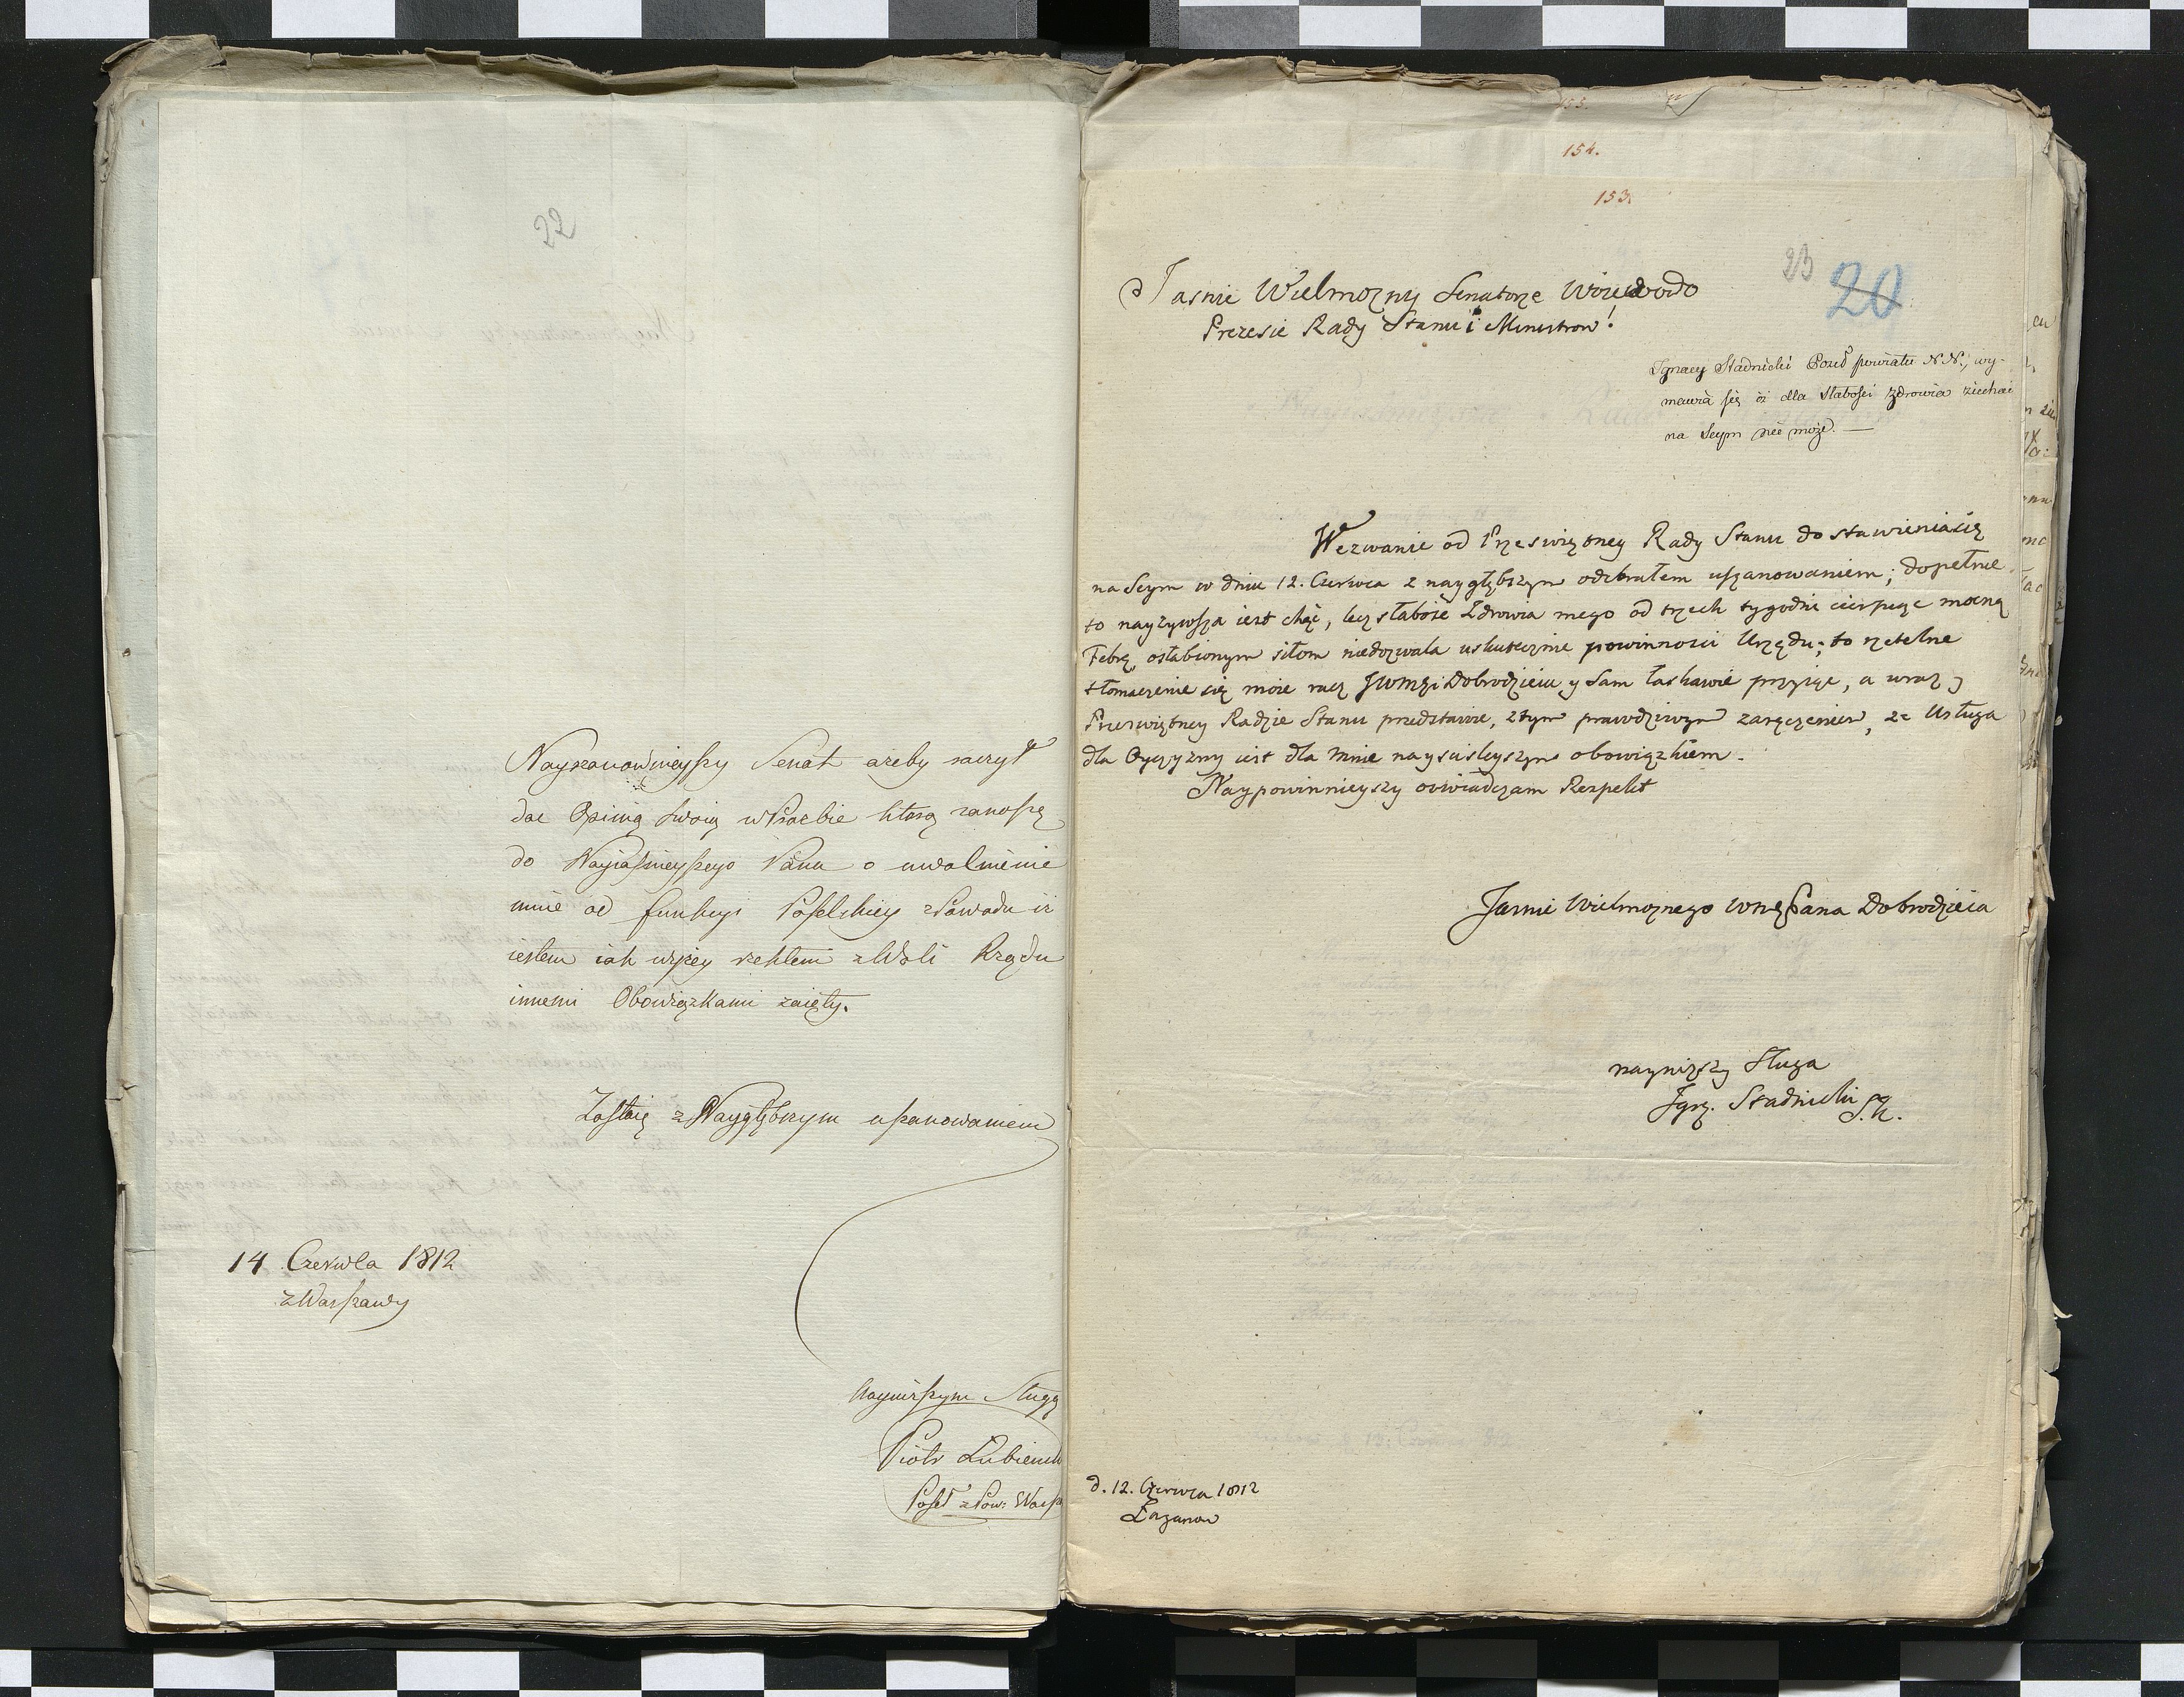 22
Nayszanownieyszy Senat ażeby raczył
dac Opinią swoią w Prozbie ktorą zanoszę
do Nayiasnieyszego Pana o uwolnienie
mnie od funkcyi Poselskiey z Powodu iż
iestem iak wyżey rzekłem z Woli Rządu
innemi Obowiązkami zaięty.
Zostaię z Naygłębszym uszanowaniem
14 Czerwca 1812
z Warszawy
Nayniższym Sługą
Piotr Łubiensk
Poseł z Pow: Warsz
154.
153.
23 20
Jasnie Wielmożny Senatorze Woiewodo
Prezesie Rady Stanu i Ministrow!
Ignacy Stadnicki Poseł powiatu N.N., wy-
mawia się iż dla słabości zdrowia ziechać
na Seym nie może. —
Wezwanie od Przeświętney Rady Stanu do stawienia się
na Seym w dniu 12. Czerwca z naygłębszym odebrałem uszanowaniem; dopełnić
to nayżywsza iest chęć, lecz słabość Zdrowia mego od trzech tygodni cierpiąc mocną
Febrę, osłabionym siłom niedozwala uskutecznić powinności Urzędu; to rzetelne
tłomaczenie się moie racz JWMości Dobrodzieiu y Sam łaskawie przyiąć, a wraz y
Przeświętney Radzie Stanu przedstawić, z tym prawdziwym zaręczeniem, że Usługa
dla Oyczyzny iest dla mnie nayscisleyszym obowiązkiem.
Naypowinnieyszy oswiadczam Respekt
Jasnie Wielmożnego WMć Pana Dobrodzieia
nayniższy Sługa
Igcy. Stadnicki
d. 12. Czerwca 1812